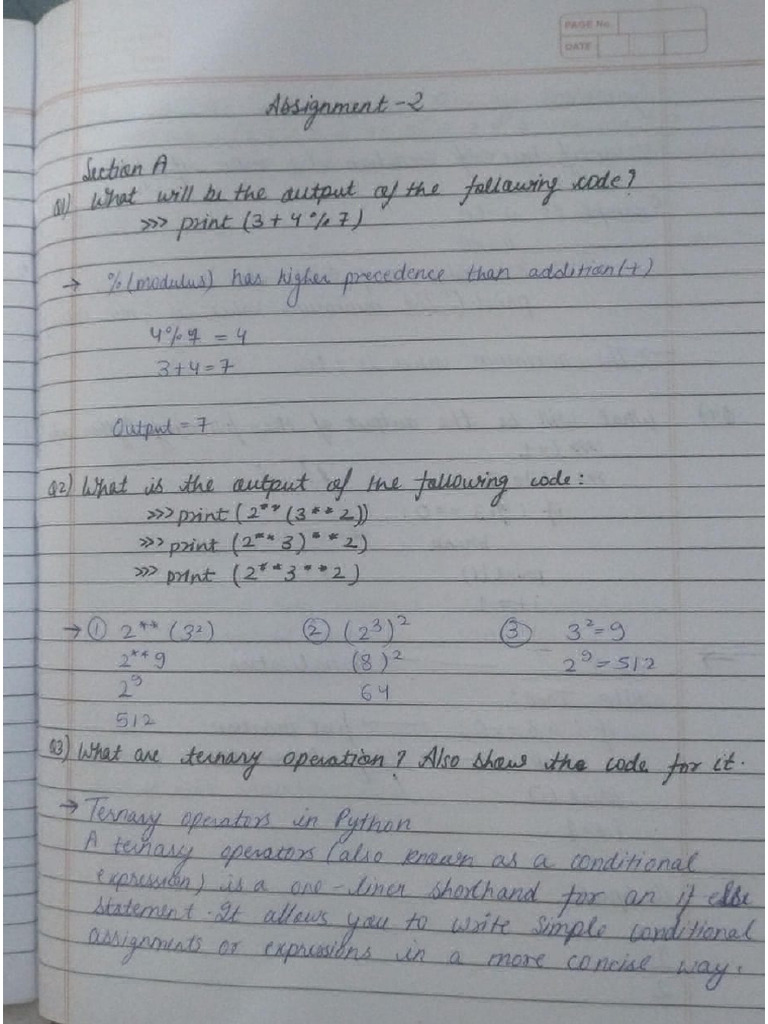 PAGE No.
DATE
Assignment - 2
Section A
Q1) What will be the output of the following code?
>>> print (3 + 4 % 7)
→ % (modulus) has higher precedence than addition (+)
4 % 7 = 4
3 + 4 = 7
Output = 7
Q2) What is the output of the following code :
>>> print (2** (3**2))
>>> print (2**3)**2)
>>> print (2**3**2)
→ ① 2** (3²) ② (2³)² ③ 3² = 9
2**9 (8)² 2⁹ = 512
2⁹ 64
512
Q3) What are ternary operation? Also show the code for it.
→ Ternary operators in Python
A ternary operators (also known as a conditional
expression) is a one-liner shorthand for an if else
statement. It allows you to write simple conditional
assignments or expressions in a more concise way.